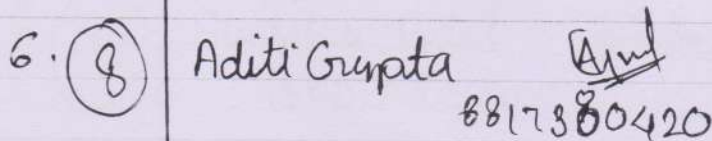 6. 8 Aditi Gupta
8817380420